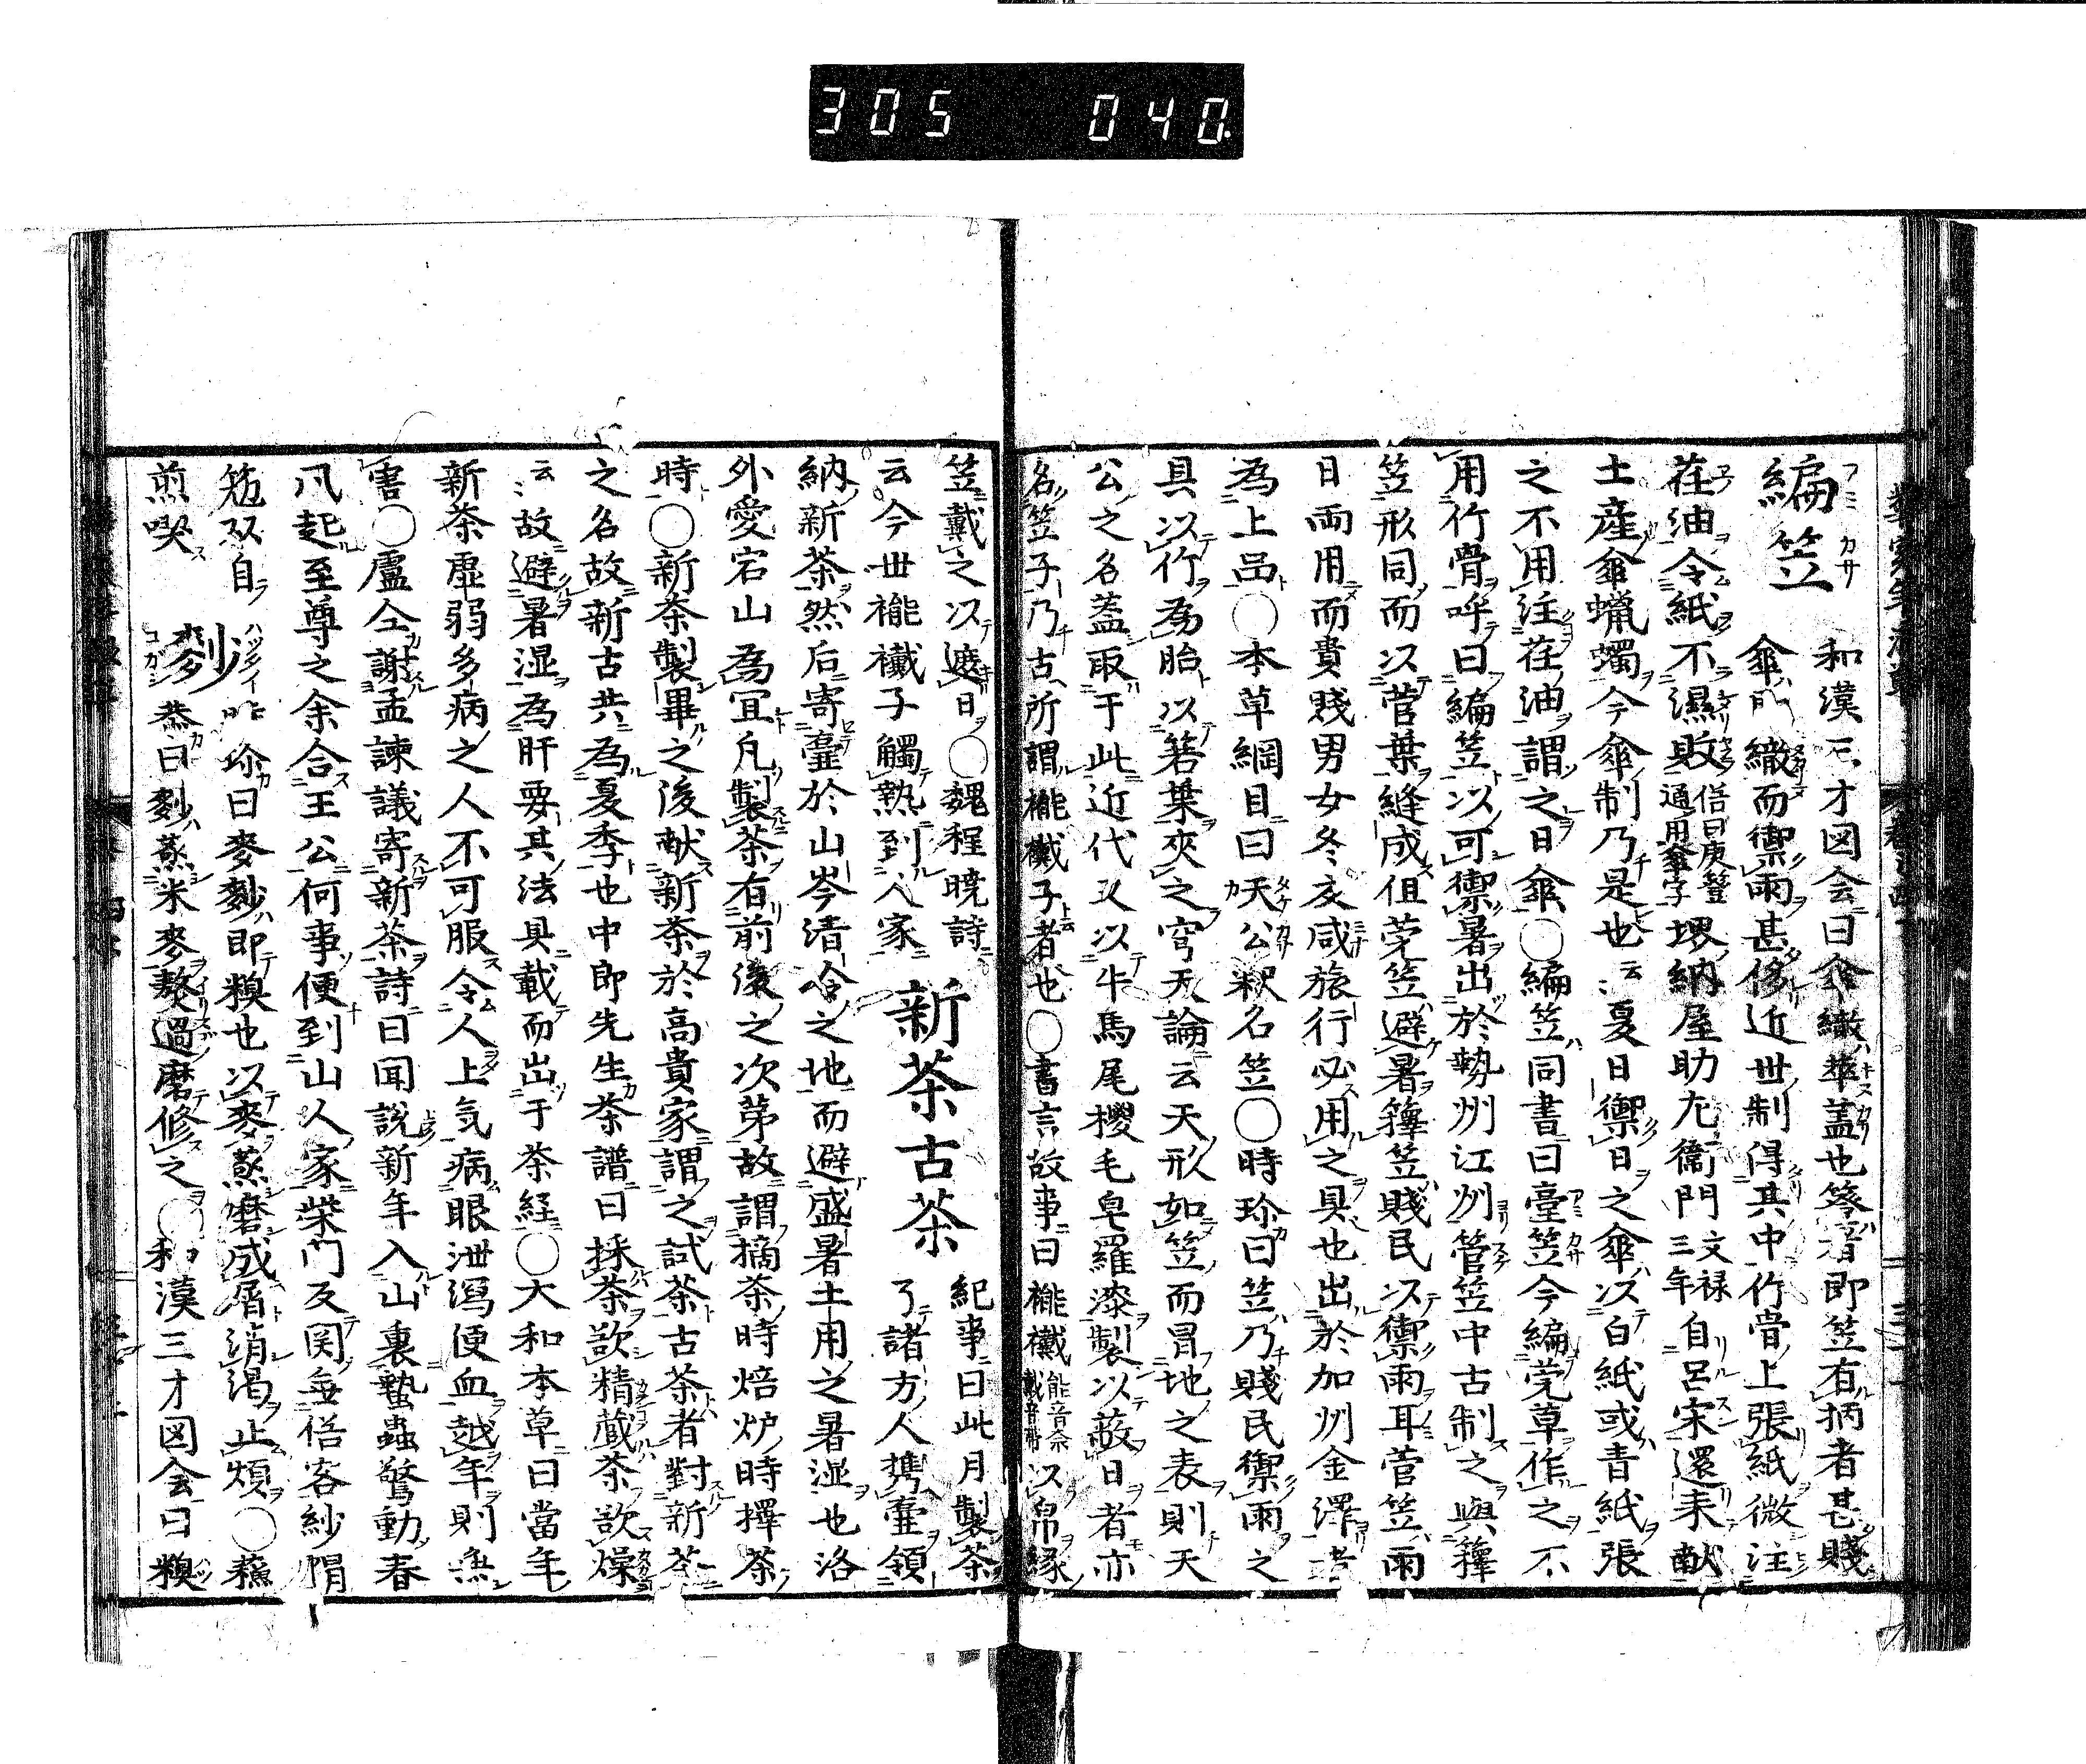 305 040
編笠
和漢三才図会曰傘繖華盖也簦者即笠有柄者甚賤
傘繖而禦雨甚侈近世制得其中竹骨上張紙微注
荏油令紙不濕敗俗曰庚簦通用傘字堺納屋助左衛門文禄三年自呂宋還来献
土産傘蠟蠋今傘制乃是也云云夏日禦日之傘以白紙或青紙張
之不用注荏油謂之日傘〇編笠同書曰臺笠今編莞草作之不
用竹骨呼曰編笠以可禦暑出於勢州江州管笠中古制之與籜
笠形同而以菅葉縫成但莞笠避暑籜笠賤民以禦雨耳菅笠雨
日両用而貴賤男女冬夜咸旅行必用之具也出於加州金澤者
為上品〇本草綱目曰天公釈名笠〇時珍曰笠乃賤民禦雨之
具以竹為胎以箬葉夾之穹天論云天形如笠而冒地之表則天
公之名蓋取于此近代又以牛馬尾椶毛皂羅漆製以蔽日者亦
名笠子乃古所謂襶子者也〇書言故事曰襶能音奈戴音帯以帛縁
笠戴之以遮日〇魏程暁詩
云今世襶子觸熱到人家
新茶古茶
紀事曰此月製茶
了諸方人携壷領
納新茶然后寄壷於山岑清冷之地而避盛暑土用之暑湿也洛
外愛宕山為宜凡製茶有前後之次苐故謂摘茶時焙炉時擇茶
時〇新茶製畢之後献新茶於高貴家謂之試茶古茶者對新茶
之名故新古共為夏季也中郎先生茶譜曰採茶欲精蔵茶欲燥
云云故避暑湿為肝要其法具載而出于茶経〇大和本草曰當年
新茶虚弱多病之人不可服令人上気病眼泄瀉便血越年則無
害〇盧仝謝孟諫議寄新茶詩曰聞説新年入山裏蟄蟲驚動春
風起至尊之余合王公何事便到山人家柴門反関無俗客紗帽
籠頭自
煎喫
麨
珍曰麥麨即糗也以麥蒸磨成屑消渇止煩〇蘓
恭曰麨蒸米麥熬過磨修之〇和漢三才図会曰糗